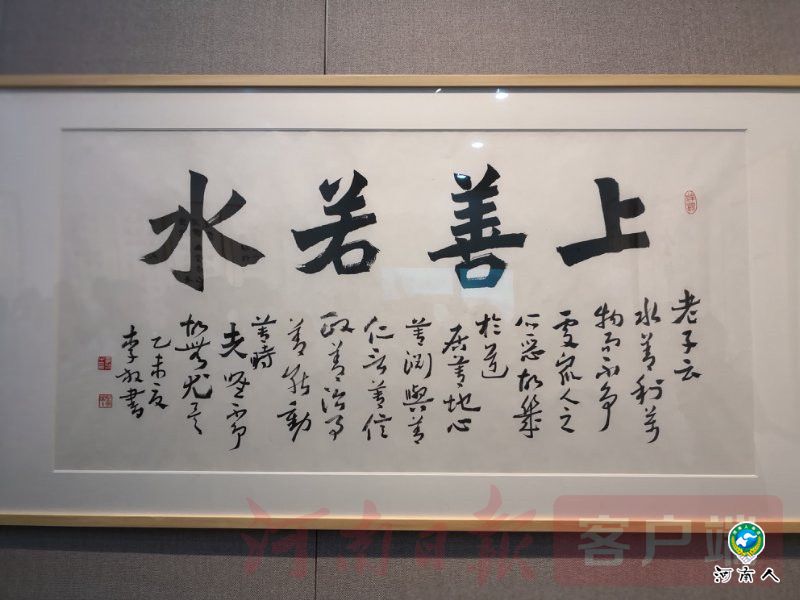 上善若水
老子云
水善利萬
物而不争
處眾人之
所惡故幾
於道
居善地心
善淵與善
仁言善信
政善治事
善能動
善時
夫唯不争
故無尤矣
乙未夏
李書
河南日报 客户端
河南人